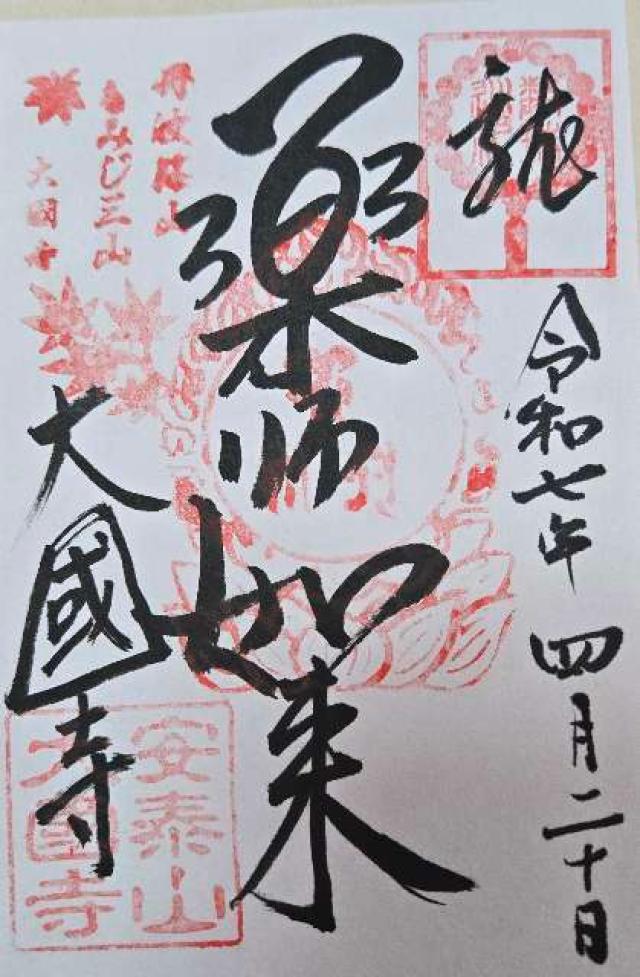 龍
令和七年四月二十日
薬師如来
丹波篠山
もみじ三山
大国寺
大國寺
安泰山
大国寺